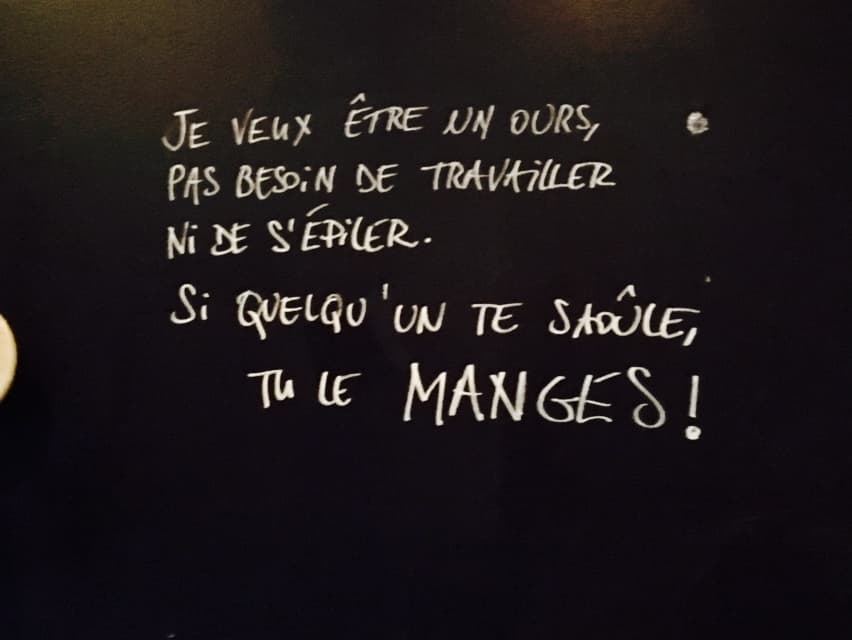 JE VEUX ÊTRE UN OURS,
PAS BESOIN DE TRAVAILLER
NI DE S'ÉPILER.
SI QUELQU'UN TE SAOÛLE,
TU LE MANGES !